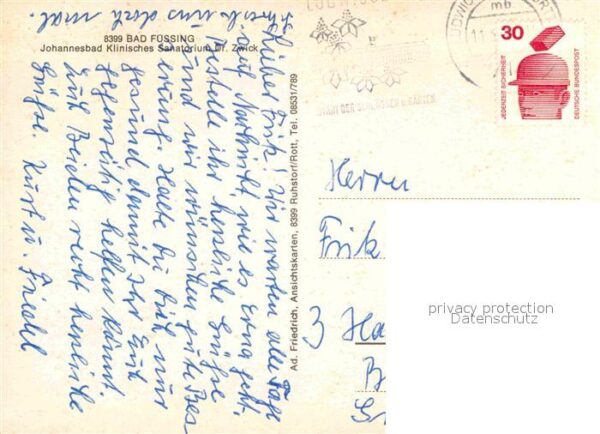 8399 BAD FÜSSING
Johannesbad Klinisches Sanatorium Dr. Zwick
Lieber Frik! Wir warten alle Tage
auf wie es Erna geht.
Bestelle ihr herzliche Grüße
und wir wünschen gute Bes-
serung. Halte du dich nur
gesund damit Ihr Euch
gegenseitig helfen könnt.
Euch Beiden recht herzliche
Grüße. Kurt u. Friedel
uns doch mal.
Ad. Friedrich, Ansichtskarten, 8399 Ruhstorf/Rott, Tel. 08531/789
STADT DER SCHLÖSSER U. GÄRTEN
mb
11.
30
JEDERZEIT SICHERHEIT
DEUTSCHE BUNDESPOST
Herrn
Frik
3 Ha
B
privacy protection
Datenschutz